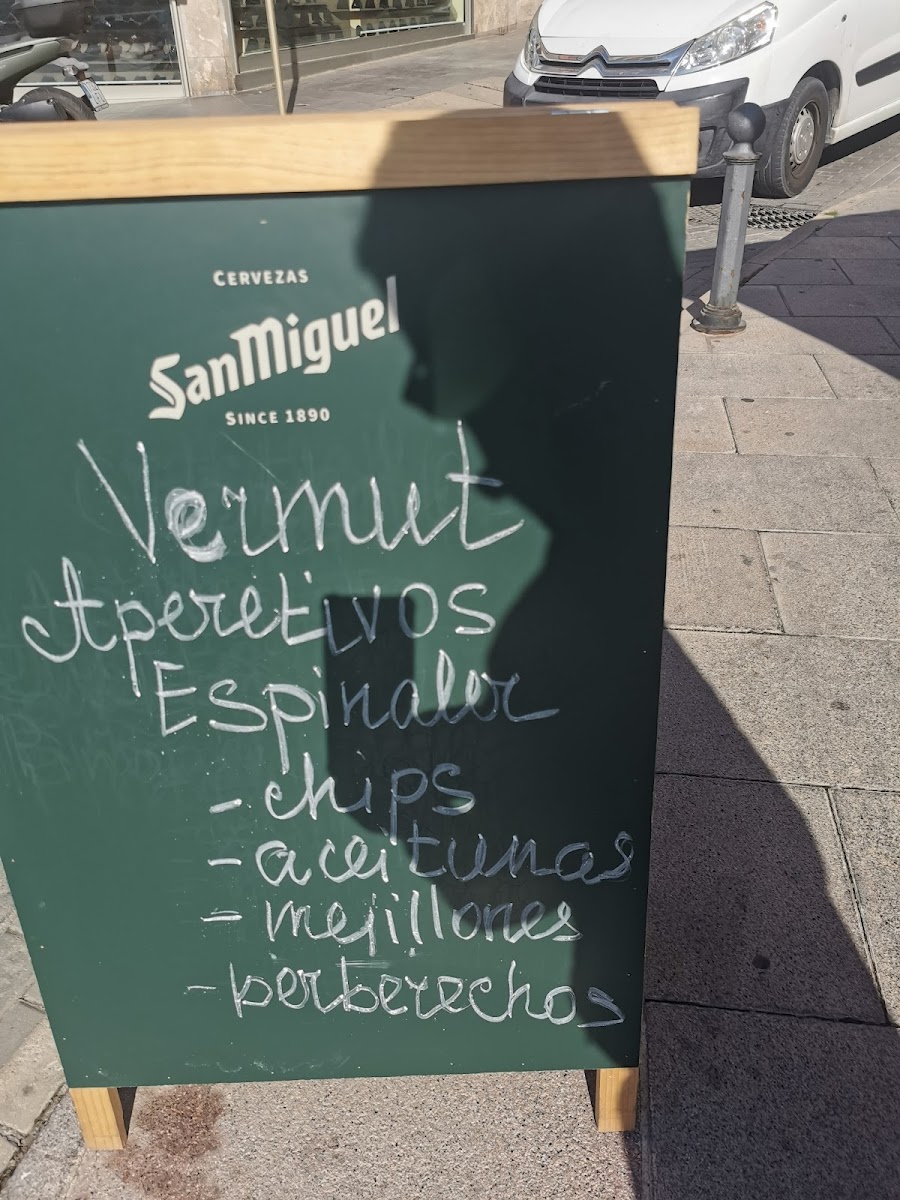 CERVEZAS
San Miguel
SINCE 1890
Vermut
Aperetivos
Espinaler
- chips
- aceitunas
- mejillones
- perberechos